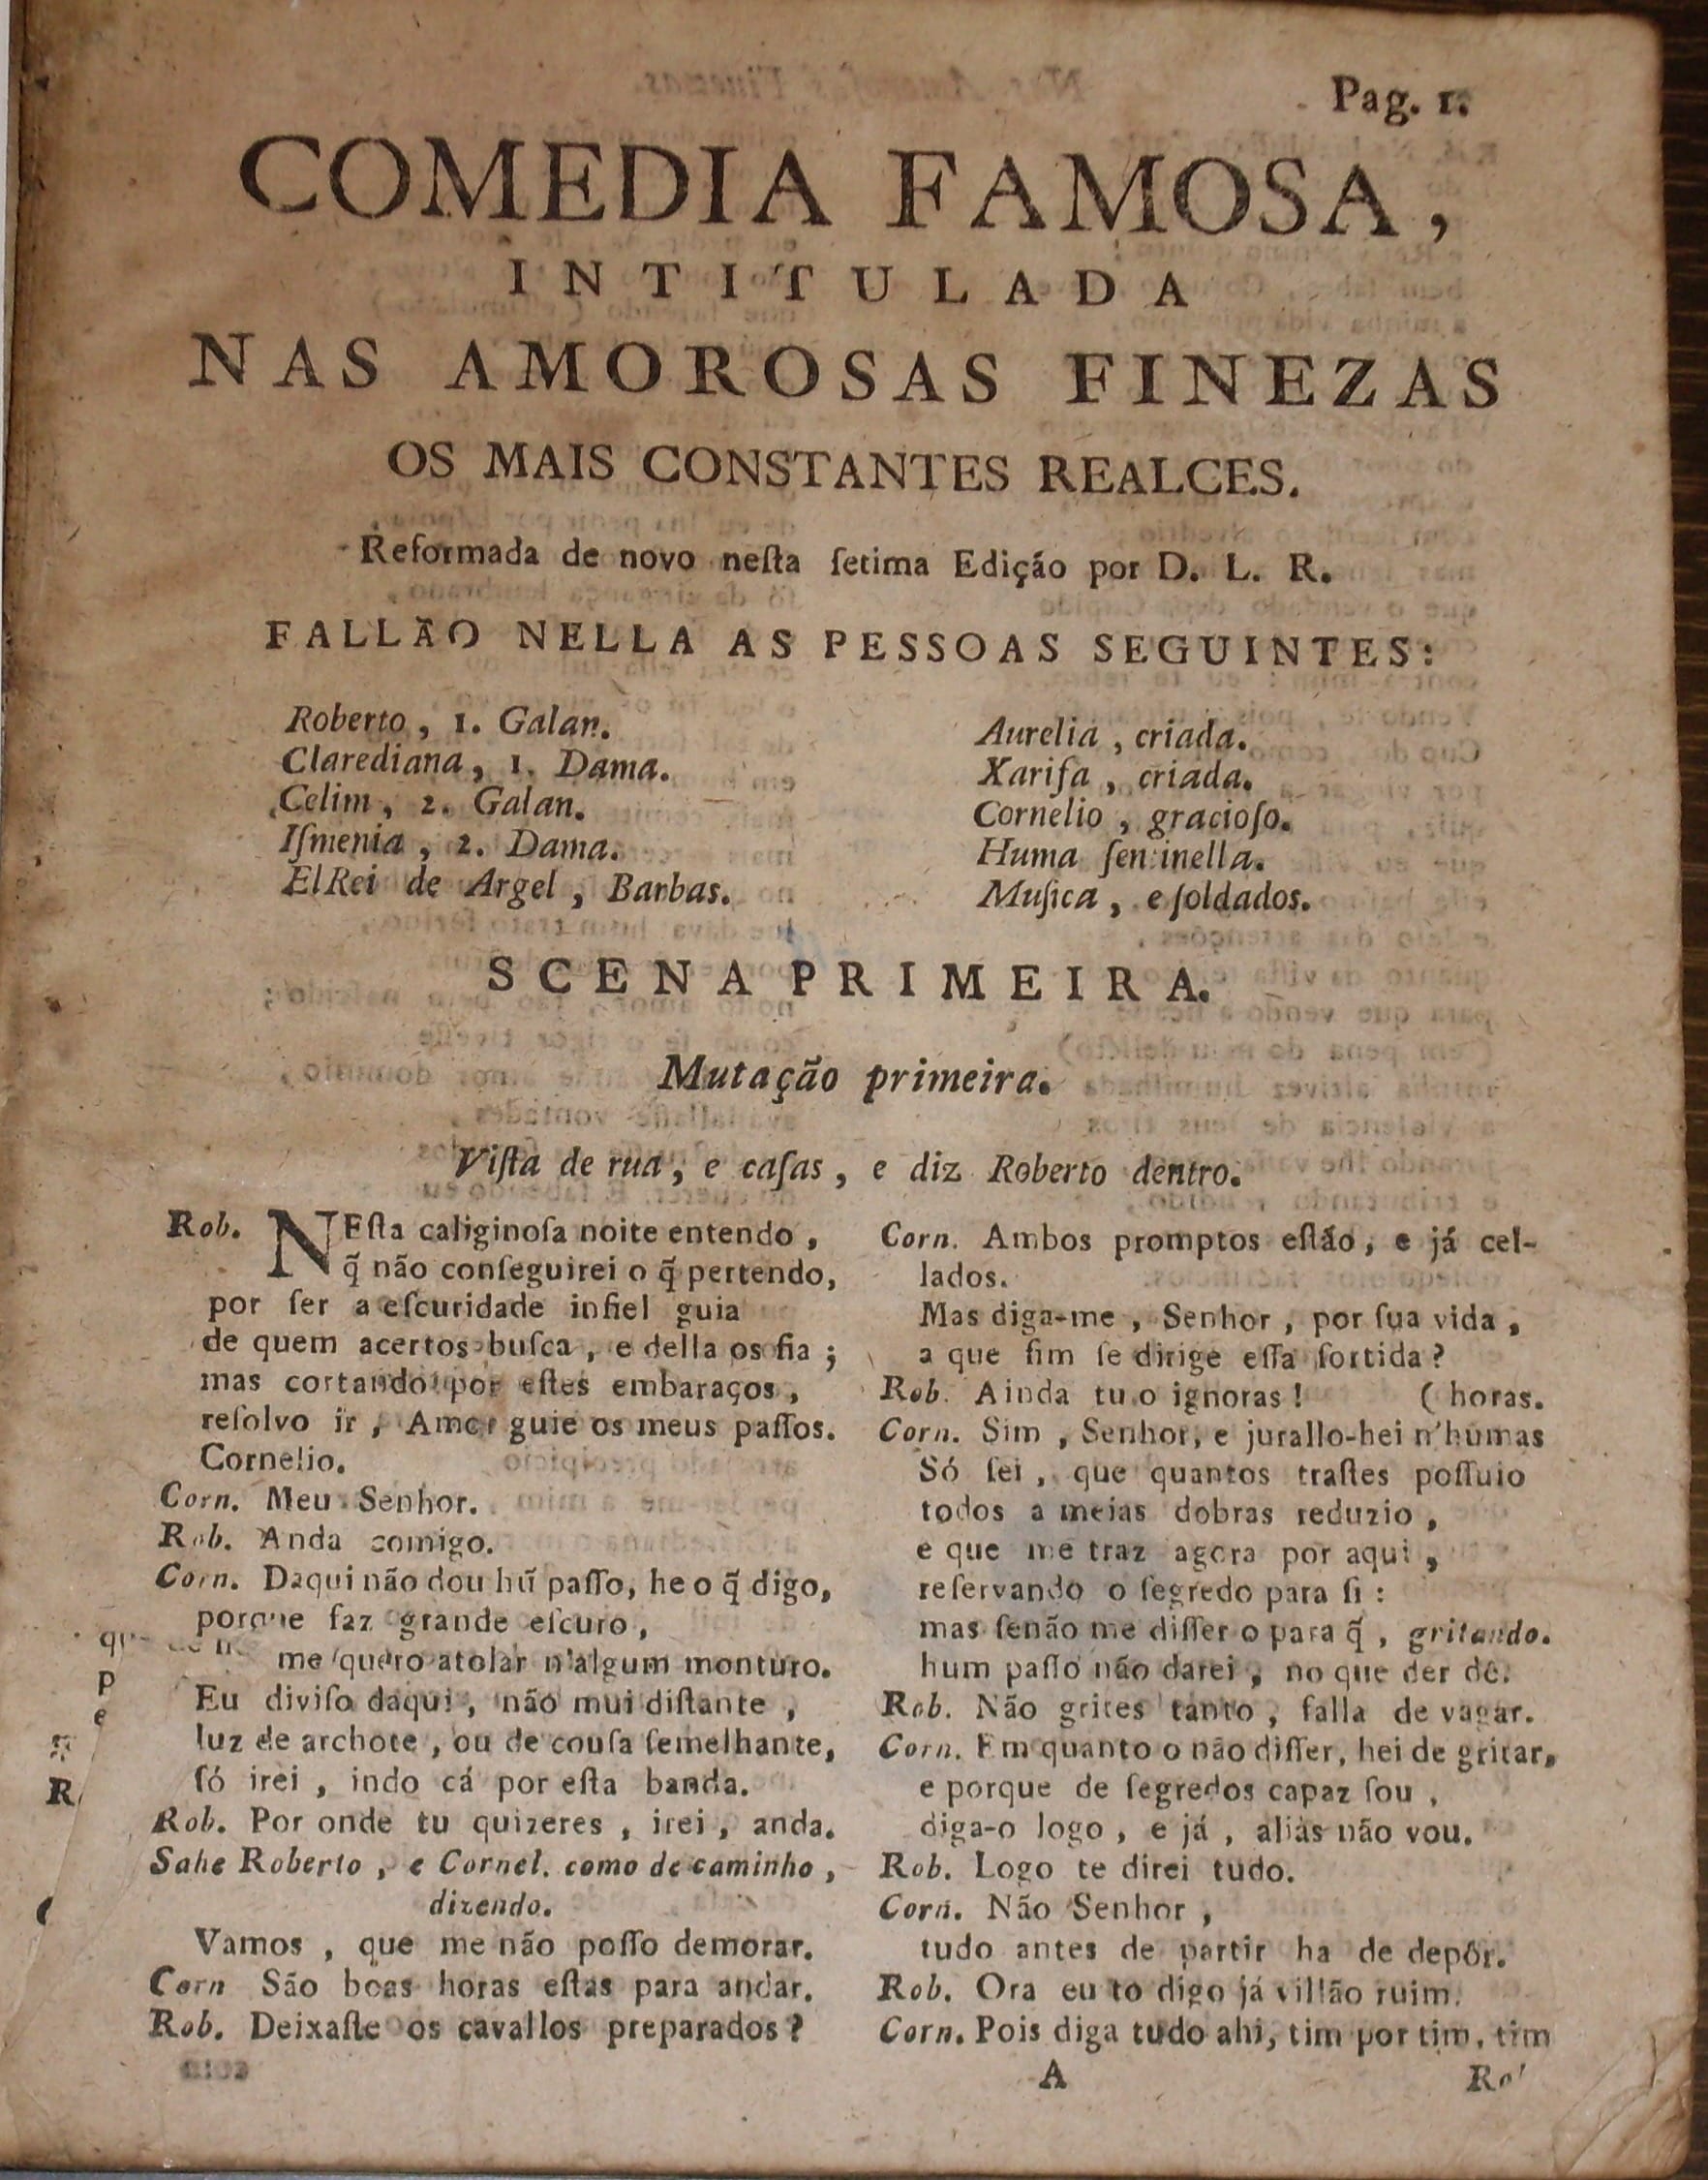 Pag. 1.
COMEDIA FAMOSA,
INTITULADA
NAS AMOROSAS FINEZAS
OS MAIS CONSTANTES REALCES.
Reformada de novo neſta ſetima Edição por D. L. R.
FALLÃO NELLA AS PESSOAS SEGUINTES:
Roberto, 1. Galan.
Clarediana, 1. Dama.
Celim, 2. Galan.
Iſmenia, 2. Dama.
ElRei de Argel, Barbas.
Aurelia, criada.
Xarifa, criada.
Cornelio, gracioſo.
Huma ſentinella.
Muſica, e ſoldados.
SCENA PRIMEIRA.
Mutação primeira.
Viſta de rua, e caſas, e diz Roberto dentro.
Rob. NEſta caliginoſa noite entendo,
q̃ não conſeguirei o q̃ pertendo,
por ſer a eſcuridade infiel guia
de quem acertos buſca, e della os fia;
mas cortando por eſtes embaraços,
reſolvo ir, Amor guie os meus paſſos.
Cornelio.
Corn. Meu Senhor.
Rob. Anda comigo.
Corn. Daqui não dou hũ paſſo, he o q̃ digo,
porque faz grande eſcuro,
me quero atolar n'algum monturo.
Eu diviſo daqui, não mui diſtante,
luz de archote, ou de couſa ſemelhante,
ſó irei, indo cá por eſta banda.
Rob. Por onde tu quizeres, irei, anda.
Sahe Roberto, e Cornel. como de caminho,
dizendo.
Vamos, que me não poſſo demorar.
Corn São boas horas eſtas para andar.
Rob. Deixaſte os cavallos preparados?
Corn. Ambos promptos eſtão, e já cel-
lados.
Mas diga-me, Senhor, por ſua vida,
a que fim ſe dirige eſſa ſortida?
Rob. Ainda tu o ignoras! (horas.
Corn. Sim, Senhor, e jurallo-hei n'humas
Só ſei, que quantos traſtes poſſuio
todos a meias dobras reduzio,
e que me traz agora por aqui,
reſervando o ſegredo para ſi:
mas ſenão me diſſer o para q̃, gritando.
hum paſſo não darei, no que der dê.
Rob. Não grites tanto, falla de vagar.
Corn. Em quanto o não diſſer, hei de gritar,
e porque de ſegredos capaz ſou,
diga-o logo, e já, aliàs não vou.
Rob. Logo te direi tudo.
Corn. Não Senhor,
tudo antes de partir ha de depôr.
Rob. Ora eu to digo já villão ruim.
Corn. Pois diga tudo ahi, tim por tim, tim
A